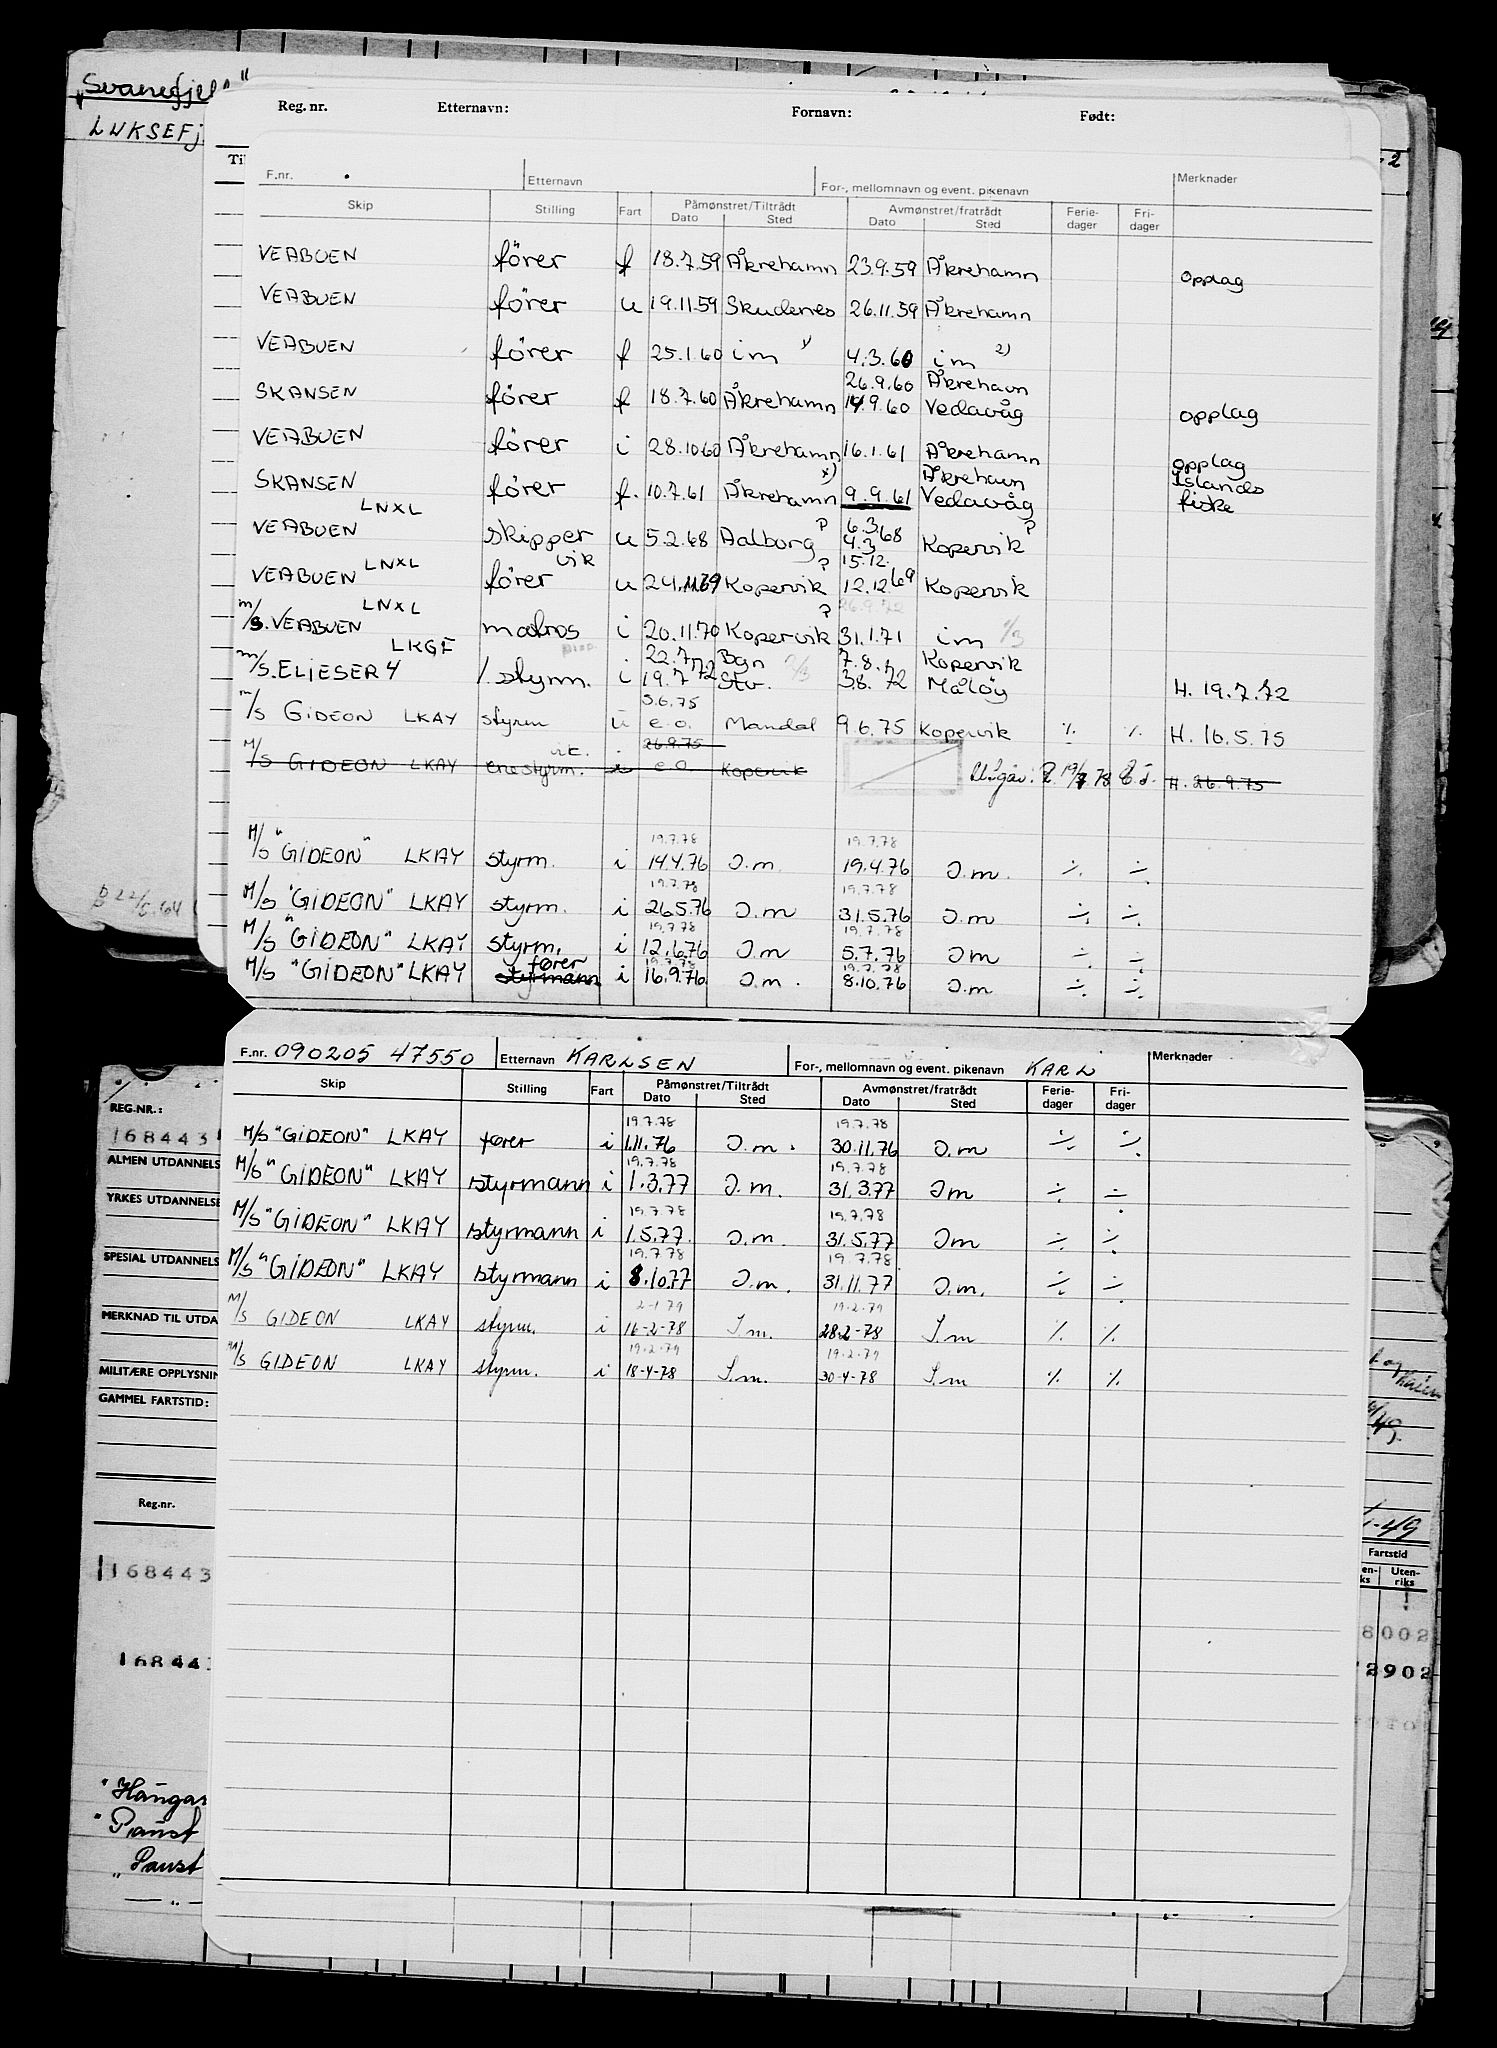 "Svanefjel"
Reg. nr. Etternavn: Fornavn: Født:
F.nr. Etternavn For-, mellomnavn og event. pikenavn Merknader
Skip Stilling Fart Påmønstret/Tiltrådt Dato Sted Avmønstret/fratrådt Dato Sted Feriedager Fridager
VEABUEN förer f 18.7.59 Åkrehamn 23.9.59 Åkrehamn opplag
VEABUEN förer u 19.11.59 Skudenes 26.11.59 Åkrehamn
VEABUEN förer f 25.1.60 im 4.3.60 im 2)
26.9.60 Åkrehavn
SKANSEN förer f 18.7.60 Åkrehamn 14.9.60 Vedavåg opplag
VEABUEN förer i 28.10.60 Åkrehamn 16.1.61 Åkrehamn opplag
x) Åkrehavn Islands
SKANSEN förer f. 10.7.61 Åkrehamn 9.9.61 Vedavåg fiske
LNXL ? 6.3.68 ?
VEABUEN skipper u 5.2.68 Aalborg 4.3 Kopervik
LNXL vik ? 15.12.
VEABUEN förer u 24.11.69 Kopervik 12.12.69 Kopervik
LNXL ? 26.9.72
m/s. VEABUEN matros i 20.11.70 Kopervik 31.1.71 im 1/3
LKGF 22.7. Bgn 2/3 7.8. Kopervik
m/s. ELIESER 4 1. styrm. i 19.7.72 Stv. 3.8.72 Målöy H. 19.7.72
3.6.75
m/s GIDEON LKAY styrm u e.o. Mandal 9.6.75 Kopervik ٪ ٪ H. 16.5.75
vik. 26.9.75
M/s GIDEON LKAY enestyrm. i e.o Kopervik 19/7.78 H. 26.9.75
19.7.78 19.7.78
M/s "GIDEON" LKAY styrm. i 14.4.76 I.m 19.4.76 I.m. ÷ ÷
19.7.78 19.7.78
M/s "GIDEON" LKAY styrm. i 26.5.76 I.m 31.5.76 I.m ÷ ÷
19.7.78 19.7.78
M/s "GIDEON" LKAY styrm. i 12.6.76 I.m 5.7.76 I m ÷ ÷
fører 19.7.78 19.7.78
M/s "GIDEON" LKAY styrmann i 16.9.76 I.m. 8.10.76 I.m ÷ ÷
F.nr. 090205 47550 Etternavn KARLSEN For-, mellomnavn og event. pikenavn KARL Merknader
Skip Stilling Fart Påmønstret/Tiltrådt Dato Sted Avmønstret/fratrådt Dato Sted Feriedager Fridager
19.7.78 19.7.78
M/s "GIDEON" LKAY fører i 1.11.76 I.m. 30.11.76 I.m ÷ ÷
19.7.78 19.7.78
M/s "GIDEON" LKAY styrmann i 1.3.77 I.m. 31.3.77 I m ÷ ÷
19.7.78 19.7.78
M/s "GIDEON" LKAY styrmann i 1.5.77. I.m. 31.5.77 I m ÷ ÷
19.7.78 19.7.78
M/s "GIDEON" LKAY styrmann i 8.10.77 I.m. 31.11.77 I.m. ÷ ÷
2-1-79 19.2.79
M/s GIDEON LKAY styrm. i 16-2-78 I.m. 28.2-78 I.m ٪ ٪
19.2.79 19.2.79
M/s GIDEON LKAY styrm. i 18-4-78 I.m. 30-4-78 I.m ٪ ٪
REG.NR.:
168443
ALMEN UTDANNELS
YRKES UTDANNELSE
SPESIAL UTDANNELS
MERKNAD TIL UTDA
MILITÆRE OPPLYSNIN
GAMMEL FARTSTID:
Reg.nr.
168443
16844
Fartstid
Utenriks
8002
2902
"Hangar
"Panst
"Panst
— „ —